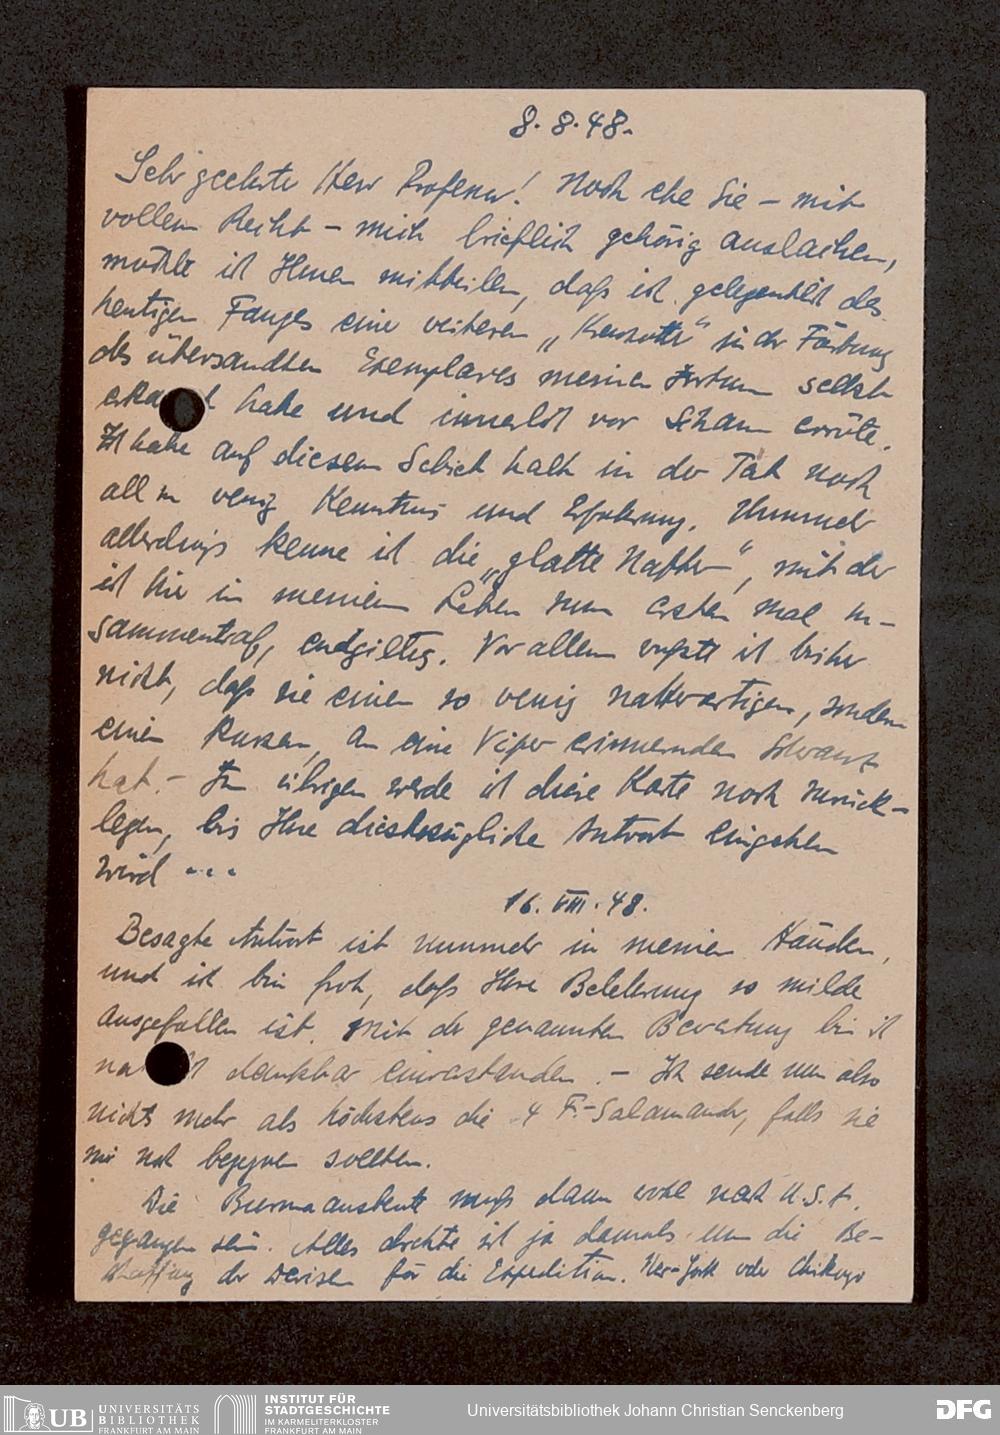 8. 8. 48.
Sehr geehrter Herr Professor! Noch ehe Sie – mit
vollem Recht – mich brieflich gehörig auslachen,
möchte ich Ihnen mitteilen, daß ich gelegentlich des
heutigen Fanges eine weiteren „Kreuzotter“ in der Färbung
des übersandten Exemplares meinen Irrtum selbst
erka t habe und innerlich vor Scham erröte.
Ich habe auf diesem Gebiet halt in der Tat noch
all zu wenig Kenntnis und Erfahrung. Nunmehr
allerdings kenne ich die „glatte Natter“, mit der
ich hier in meinem Leben zum ersten Mal zu-
sammentraf, endgiltig. Vor allem wußte ich bisher
nicht, daß sie einen so wenig natterartigen, sondern
einen kurzen, an eine Viper erinnernden Schwanz
hat. – Im übrigen werde ich diese Karte noch zurück-
legen, bis Ihre diesbezügliche Antwort eingehen
wird ...
16. VIII. 48.
Besagte Antwort ist nunmehr in meinen Händen,
und ich bin froh, daß Ihre Belehrung so milde
ausgefallen ist. Mit der genannten Bewertung bin ich
na dankbar einverstanden. – Ich sende nun also
nichts mehr als höchstens die 4 F.-Salamander, falls sie
mir noch begegnen sollten.
Die Burmaausbeute muß dann wohl nach U.S.A.
gegangen sein. Alles drehte sich ja damals um die Be-
schaffung der Devisen für die Expedition. New-York oder Chikago
UB UNIVERSITÄTS
BIBLIOTHEK
FRANKFURT AM MAIN
INSTITUT FÜR
STADTGESCHICHTE
IM KARMELITERKLOSTER
FRANKFURT AM MAIN
Universitätsbibliothek Johann Christian Senckenberg
DFG